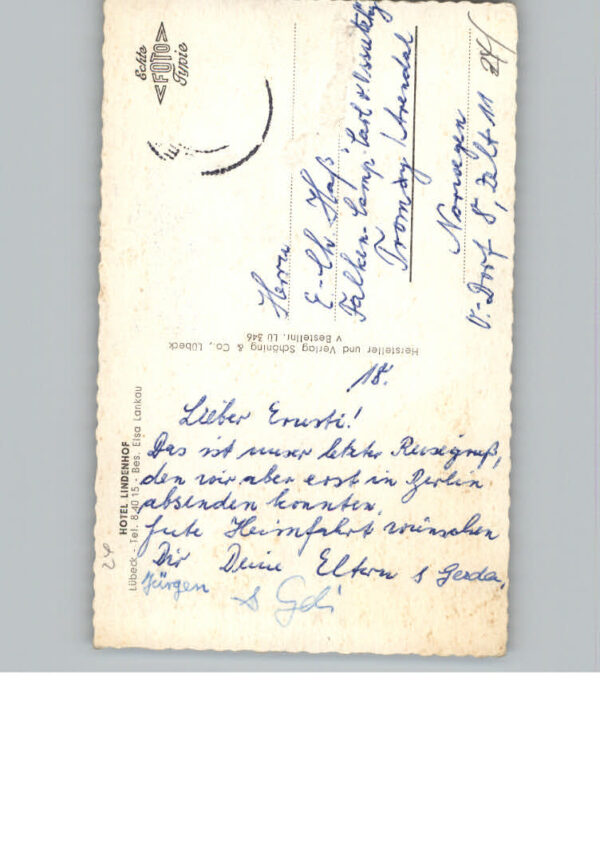 Echte
<FOTO>
Typie
Herrn
E.-Ch. Haß
Falken-Camp "Carl v. Ossietzky"
Tromöy / Arendal
Norwegen
U.-Dorf 8, Zelt 11
Hersteller und Verlag Schöning & Co., Lübeck
v Bestellnr. Lü 346
HOTEL LINDENHOF
Lübeck - Tel. 8 40 15 - Bes. Elsa Lankau
24
18.
Lieber Ernsti!
Das ist unser letzter Reisegruß,
den wir aber erst in Berlin
absenden konnten.
Gute Heimfahrt wünschen
Dir Deine Eltern & Gerda,
Jürgen &